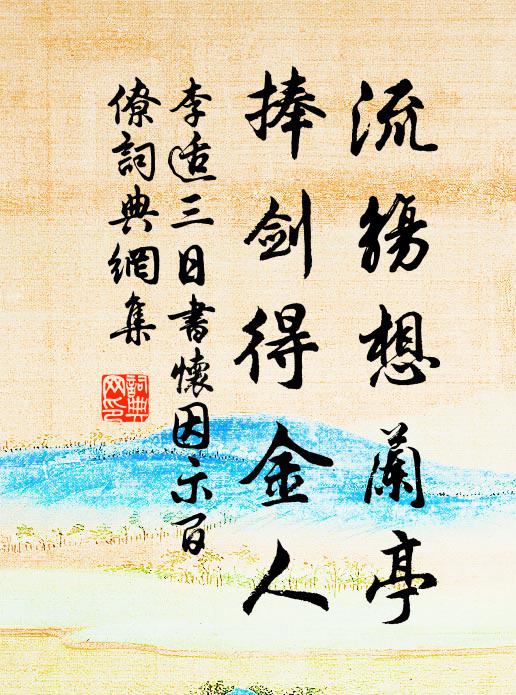 流觴想蘭亭
捧剑得金人
李适三日書懷因示百
僚詞典網集
詞典
网印